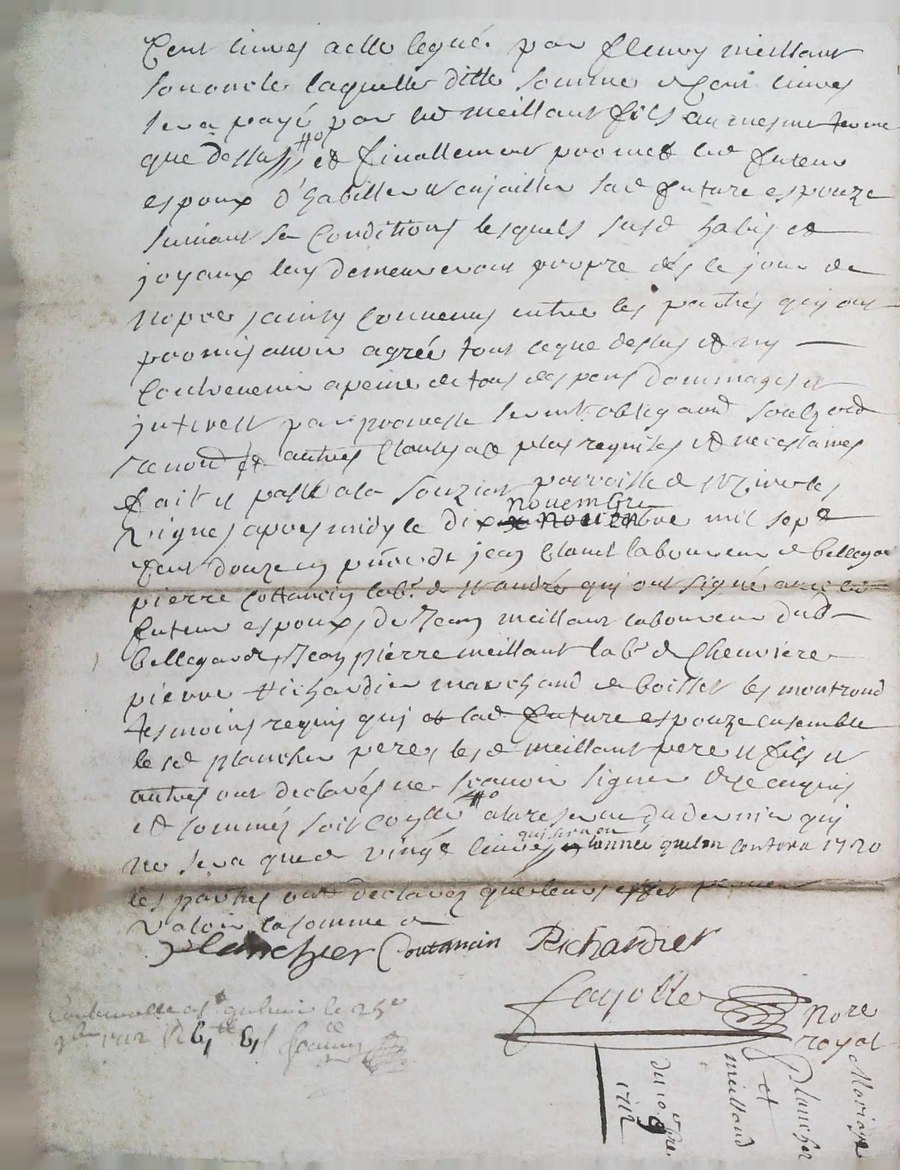 Cent livres a elle legué par fleury meillant
son oncle laquelle ditte somme de Cent livres
sera payé par led meillant fils au mesme terme
que dessus et finallement promet led futeur
espoux d'habiller et enjoailler sad future espouze
suivant sa Condition lesquels susd habis et
joyaux luy demeureront propre dés le jour de
nopce ainsy Convenus entre les parties qui ont
promis avoir agrée tout ceque dessus et ny
Contrevenir a peine de tous despens dommages et
interest par promesse serment obligaōn soubz ord
renon et autres Clauses ad plus requises et necessaires
fait et passé a la parroisse de
apres midy le dix novembre mil sept
Cent douze en pūce de jean laboureur de bellegarde
pierre Cottancin labr de st andré qui ont signé avec led
futeur espoux, de Jean meillant laboureur dud
bellegarde, Jean pierre meillant labr de Chevriere
pierre Richardier marchand de boisset les montrond
tesmoins requis qui et lad future espouze ensemble
le sd planchier pere, les sd meillant pere et fils et
autres ont declarés ne scavoir signer de ce enquis
et sommes soit Coŷlle a la reserve du dernier qui
ne sera que de vingt livres qui sera en lannée quelon Contera 1720
les parties ont declarez que leurs
valoir la somme de
Planchier Coutancin Richardier
fayolle Nore royal
Controlle a st galmier le 25e
9bre 1712 R 6
Mariage
Planchet
et
meilland
du 10 9bre
1712